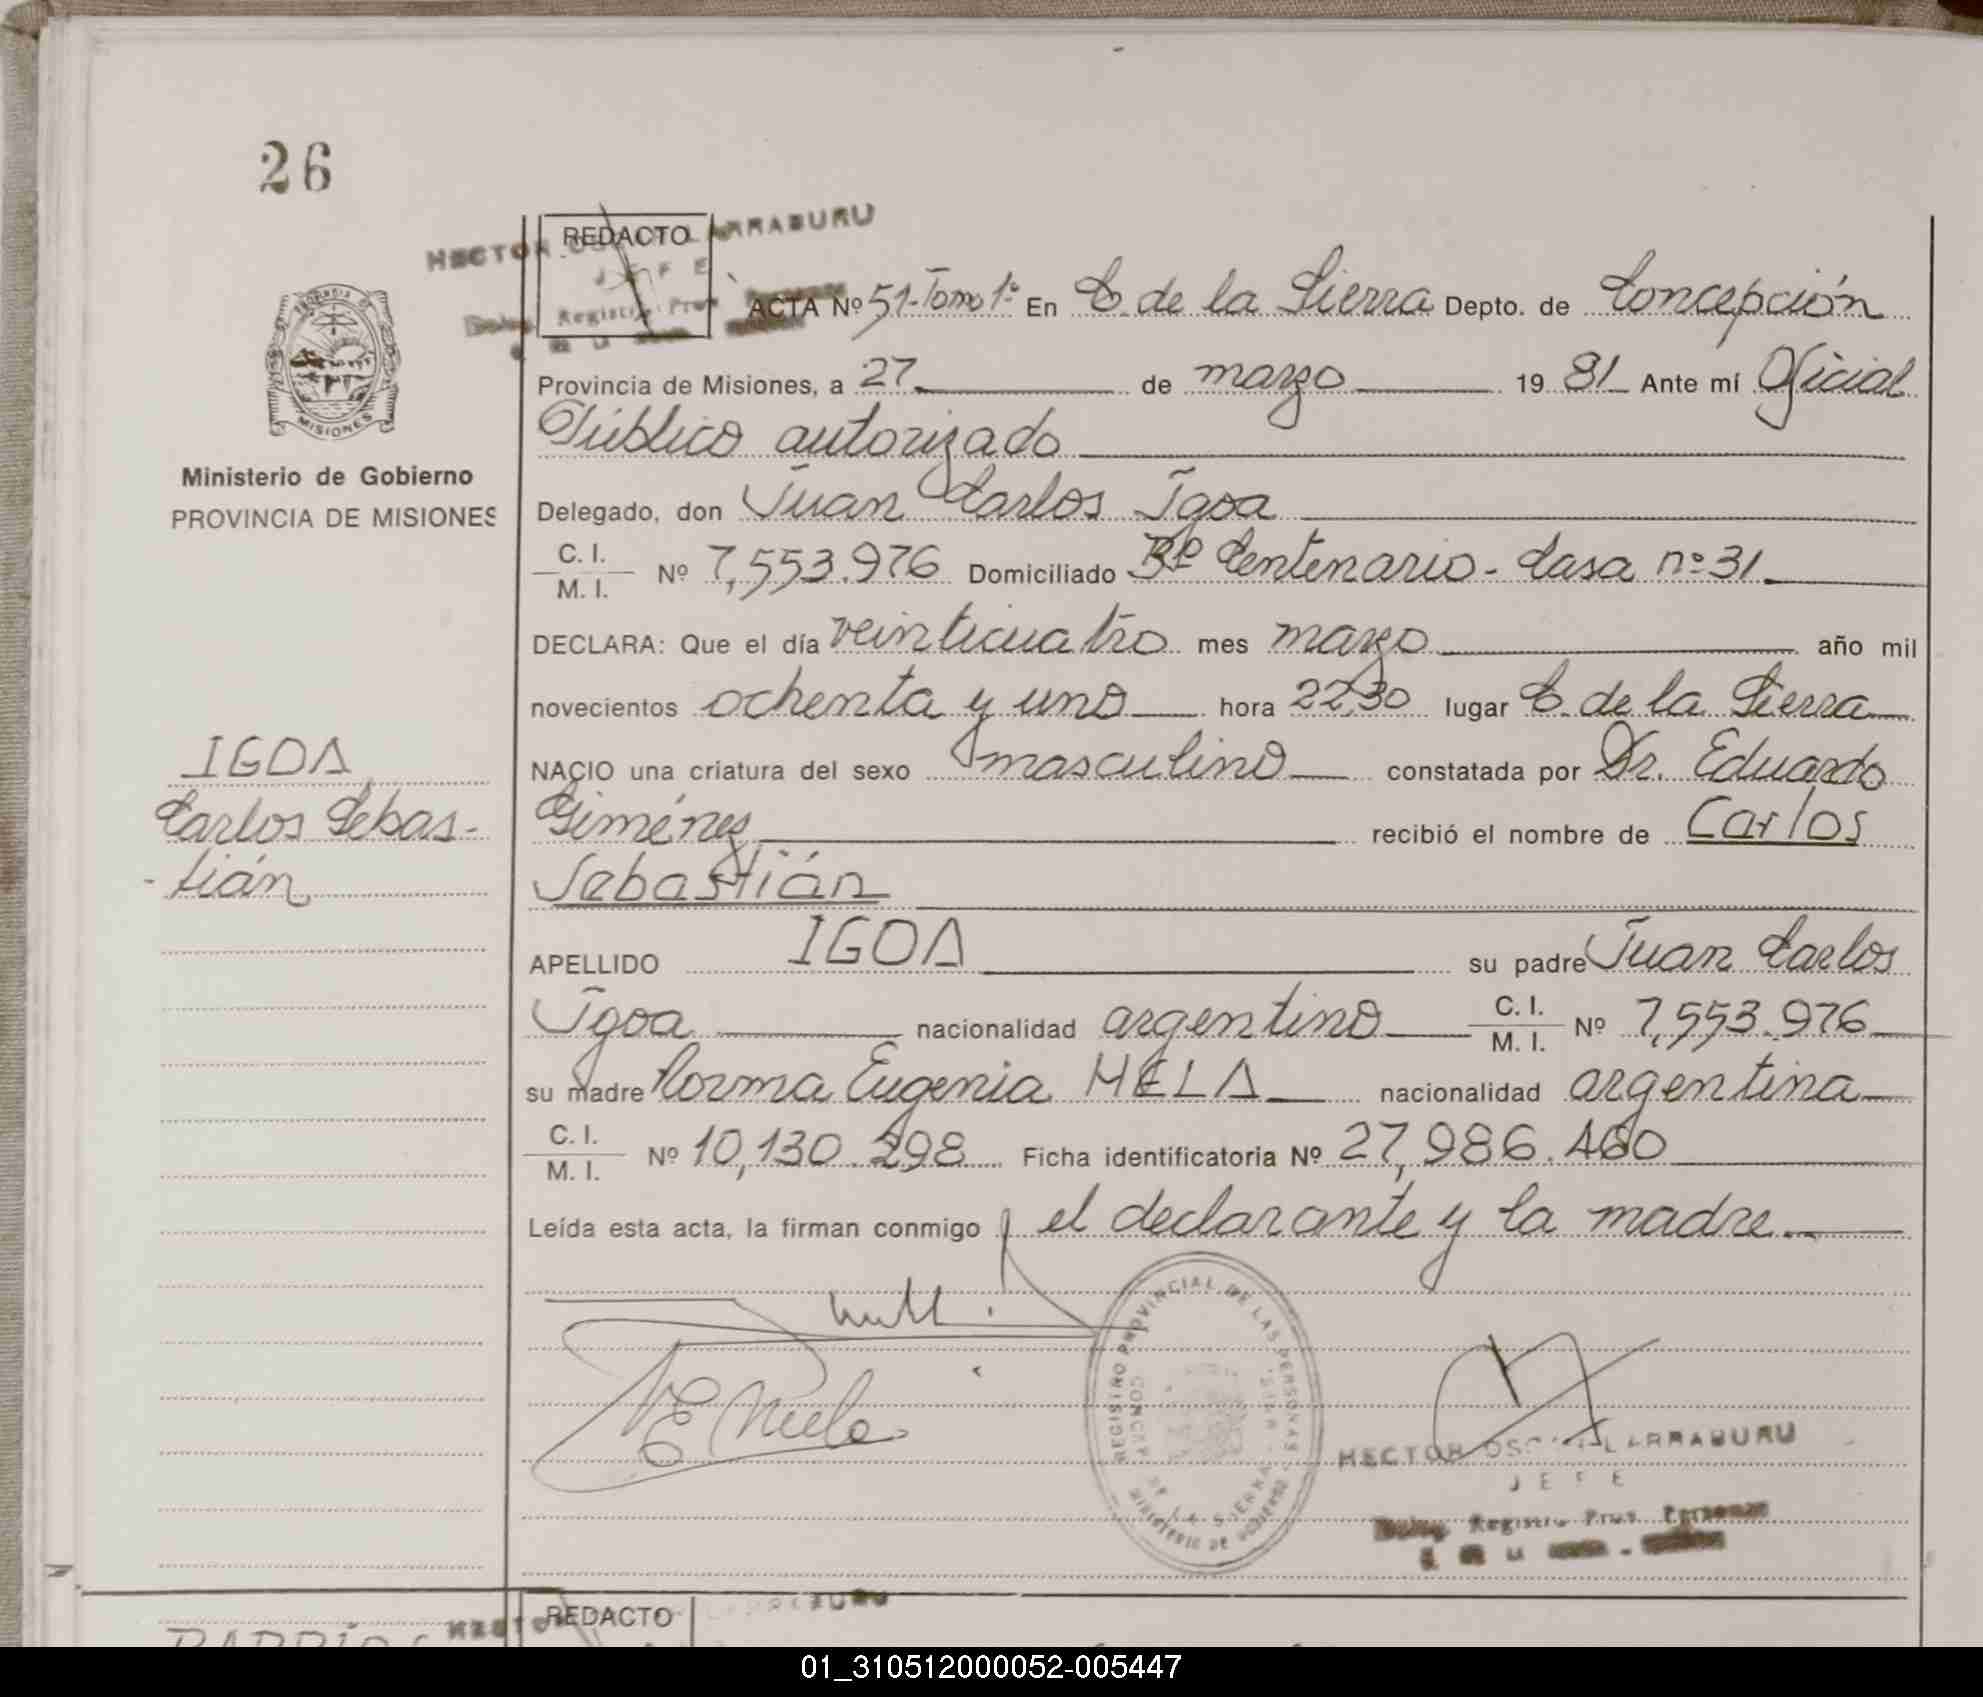 26
HECTOR OSCAR LARRABURU
REDACTO
JEFE
Registro Prov. Personas
PROVINCIA DE
MISIONES
ACTA Nº 51-Tomo 1º En C. de la Sierra Depto. de Concepción
Provincia de Misiones, a 27 de marzo 19 81 Ante mí Oficial
Público autorizado
Ministerio de Gobierno
PROVINCIA DE MISIONES
Delegado, don Juan Carlos Igoa
C. I.
M. I. Nº 7,553.976 Domiciliado Bº Centenario - Casa nº 31
DECLARA: Que el día veinticuatro mes marzo año mil
novecientos ochenta y uno hora 22,30 lugar C. de la Sierra
NACIO una criatura del sexo masculino constatada por Dr. Eduardo
Giménez recibió el nombre de Carlos
Sebastián
IGOA
Carlos Sebas-
-tián
APELLIDO IGOA su padre Juan Carlos
Igoa nacionalidad argentino C. I.
M. I. Nº 7,553.976
su madre Norma Eugenia MELA nacionalidad argentina
C. I.
M. I. Nº 10,130.298 Ficha identificatoria Nº 27,986.460
Leída esta acta, la firman conmigo el declarante y la madre.
REGISTRO PROVINCIAL DE LAS PERSONAS
CONCEP. DE LA SIERRA
MINISTERIO DE GOBIERNO
HECTOR OSCAR LARRABURU
JEFE
Registro Prov. Personas
REDACTO
01_310512000052-005447